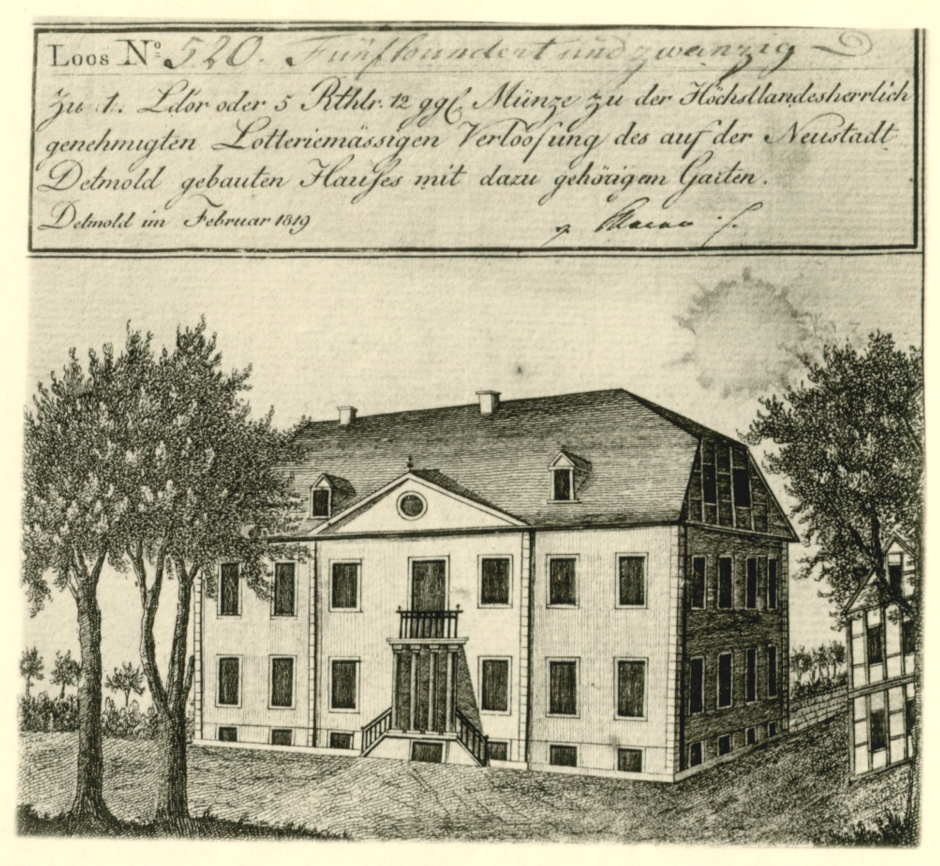 Loos No. 520. Fünfhundert und zwanzig
Zu 1. Ldór oder 5 Rthlr. 12 ggl. Münze zu der Höchstlandesherrlich
genehmigten Lotteriemässigen Verloosung des auf der Neustadt
Detmold gebauten Hauses mit dazu gehörigem Garten.
Detmold im Februar 1819